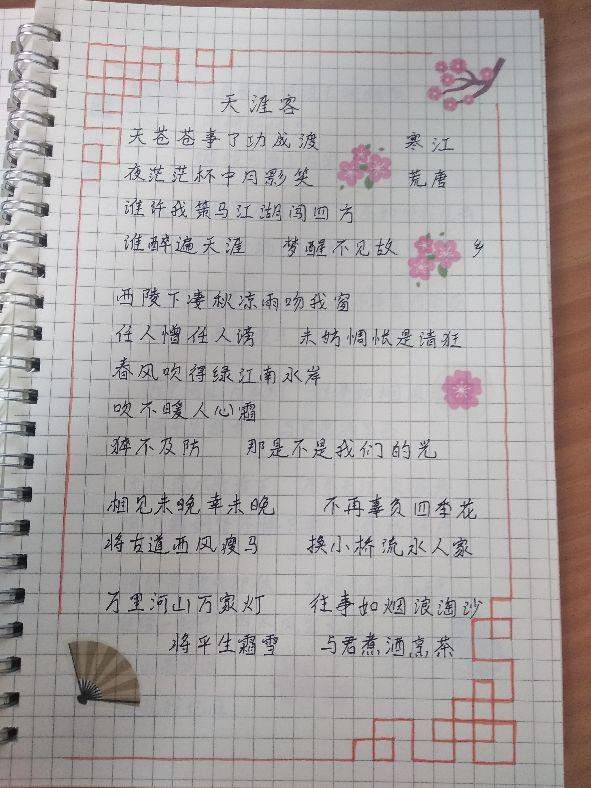 天涯客
天苍苍事了功成渡 寒江
夜茫茫杯中月影笑 荒唐
谁许我策马江湖闯四方
谁醉遍天涯 梦醒不见故 乡
西陵下凄秋凉雨吻我窗
任人憎任人谤 未妨惆怅是清狂
春风吹得绿江南水岸
吹不暖人心霜
猝不及防 那是不是我们的光
相见未晚幸未晚 不再辜负四季花
将古道西风瘦马 换小桥流水人家
万里河山万家灯 往事如烟浪淘沙
将平生霜雪 与君煮酒烹茶